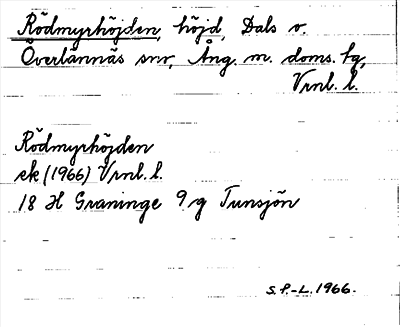 Rödmyrhöjden, höjd, Dals v.
Överlännäs snr, Ång. m. doms. fg,
Vrnl. l.
Rödmyrhöjden
ek (1966) Vrnl. l.
18 H Graninge 9 g Tunsjön
S.P.-L. 1966.